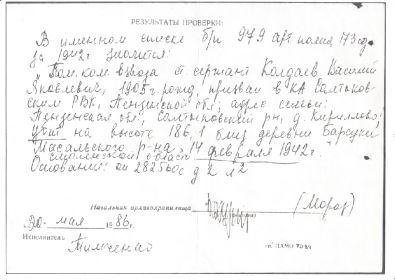 РЕЗУЛЬТАТЫ ПРОВЕРКИ:
В именном списке б/п 979 арт полка 173 сд
за 1942г значится:
"Пом. ком. взвода ст сержант Колдаев Василий
Яковлевич, 1905г рожд, призван в КА Салтыков-
ским РВК, Пензенской обл; адрес семьи:
Пензенская обл, Салтыковский рн, д. Кириллово;
убит на высоте 186,1 близ деревни Барсуки
Мосальского р-на, 14 февраля 1942г."
Смоленской области
Основание: оп 282560с д 2 л 2
Начальник архивохранилища (Мороз)
30 мая 1986г.
Исполнитель Тимченко
ЦАМО